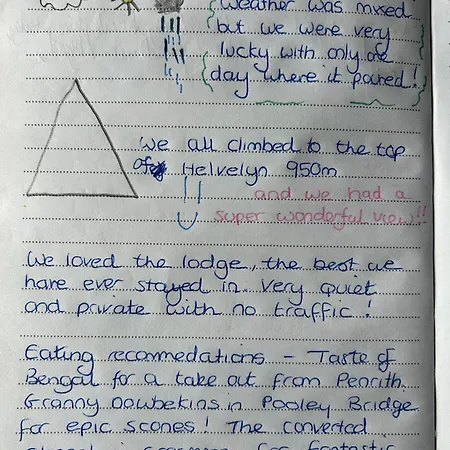 weather was mixed
but we were very
lucky with only one
day where it poured!
we all climbed to the top
of Helvelyn 950m
and we had a
super wonderful view!!
We loved the lodge, the best we
have ever stayed in. Very quiet
and private with no traffic!
Eating recommedations - Taste of
Bengal for a take out from Penrith.
Granny Dowbekins in Pooley Bridge
for epic scones! The converted
for fantastic